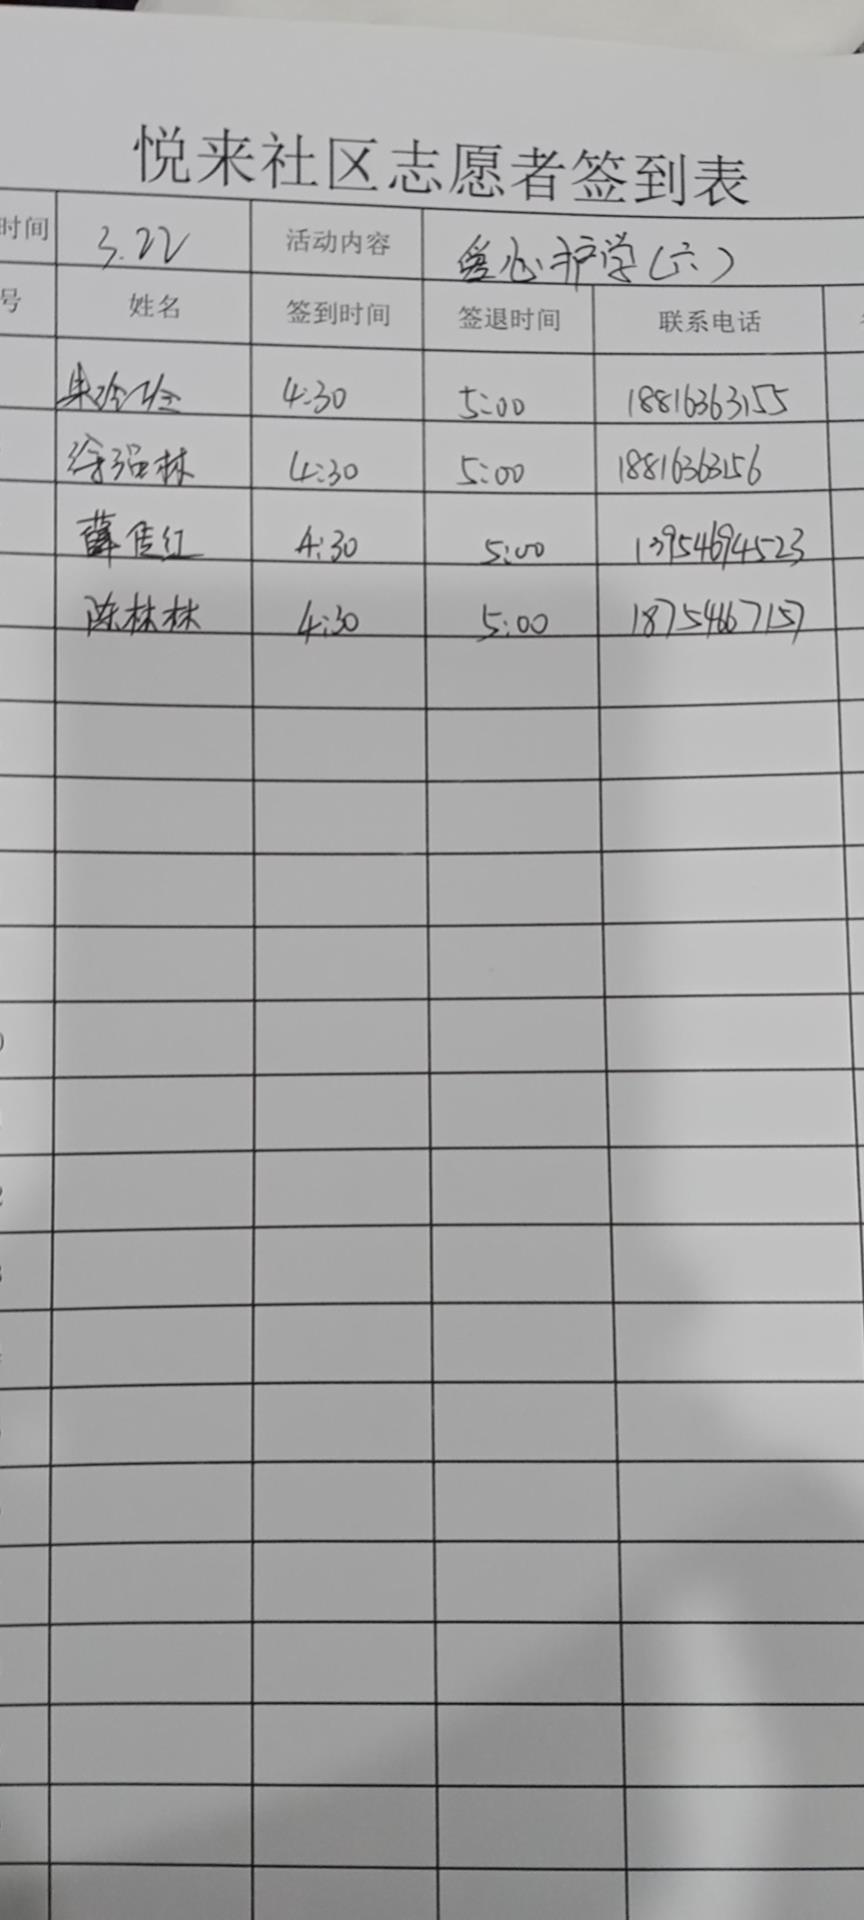 悦来社区志愿者签到表
时间 3.22 活动内容 爱心护学(六)
号 姓名 签到时间 签退时间 联系电话
4:30 5:00 18816363155
徐强林 4:30 5:00 18816363156
薛传红 4:30 5:00 13954694523
陈林林 4:30 5:00 18754667157